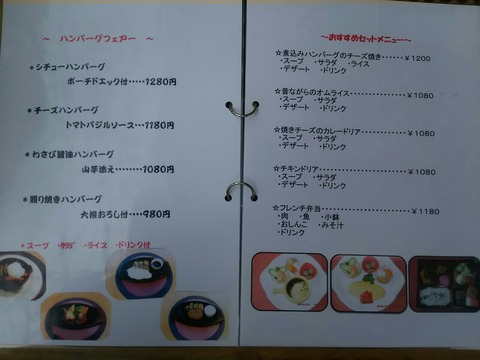 ～ ハンバーグフェアー ～
＊シチューハンバーグ
ポーチドエッグ付‥‥1280円
＊チーズハンバーグ
トマトバジルソース‥‥1180円
＊わさび醤油ハンバーグ
山芋添え‥‥‥‥1080円
＊照り焼きハンバーグ
大根おろし付‥‥980円
＊スープ ・サラダ ・ライス ・ドリンク付
～おすすめセットメニュー～
☆煮込みハンバーグのチーズ焼き‥‥‥¥1200
・スープ ・サラダ ・ライス
・デザート ・ドリンク
☆昔ながらのオムライス‥‥‥‥‥‥‥¥1080
・スープ ・サラダ
・デザート ・ドリンク
☆焼きチーズのカレードリア‥‥‥‥‥¥1080
・スープ ・サラダ
・デザート ・ドリンク
☆チキンドリア‥‥‥‥‥‥‥‥‥‥‥¥1080
・スープ ・サラダ
・デザート ・ドリンク
☆フレンチ弁当‥‥‥‥‥‥‥‥‥‥‥¥1180
・肉 ・魚 ・小鉢
・おしんこ ・みそ汁
・ドリンク